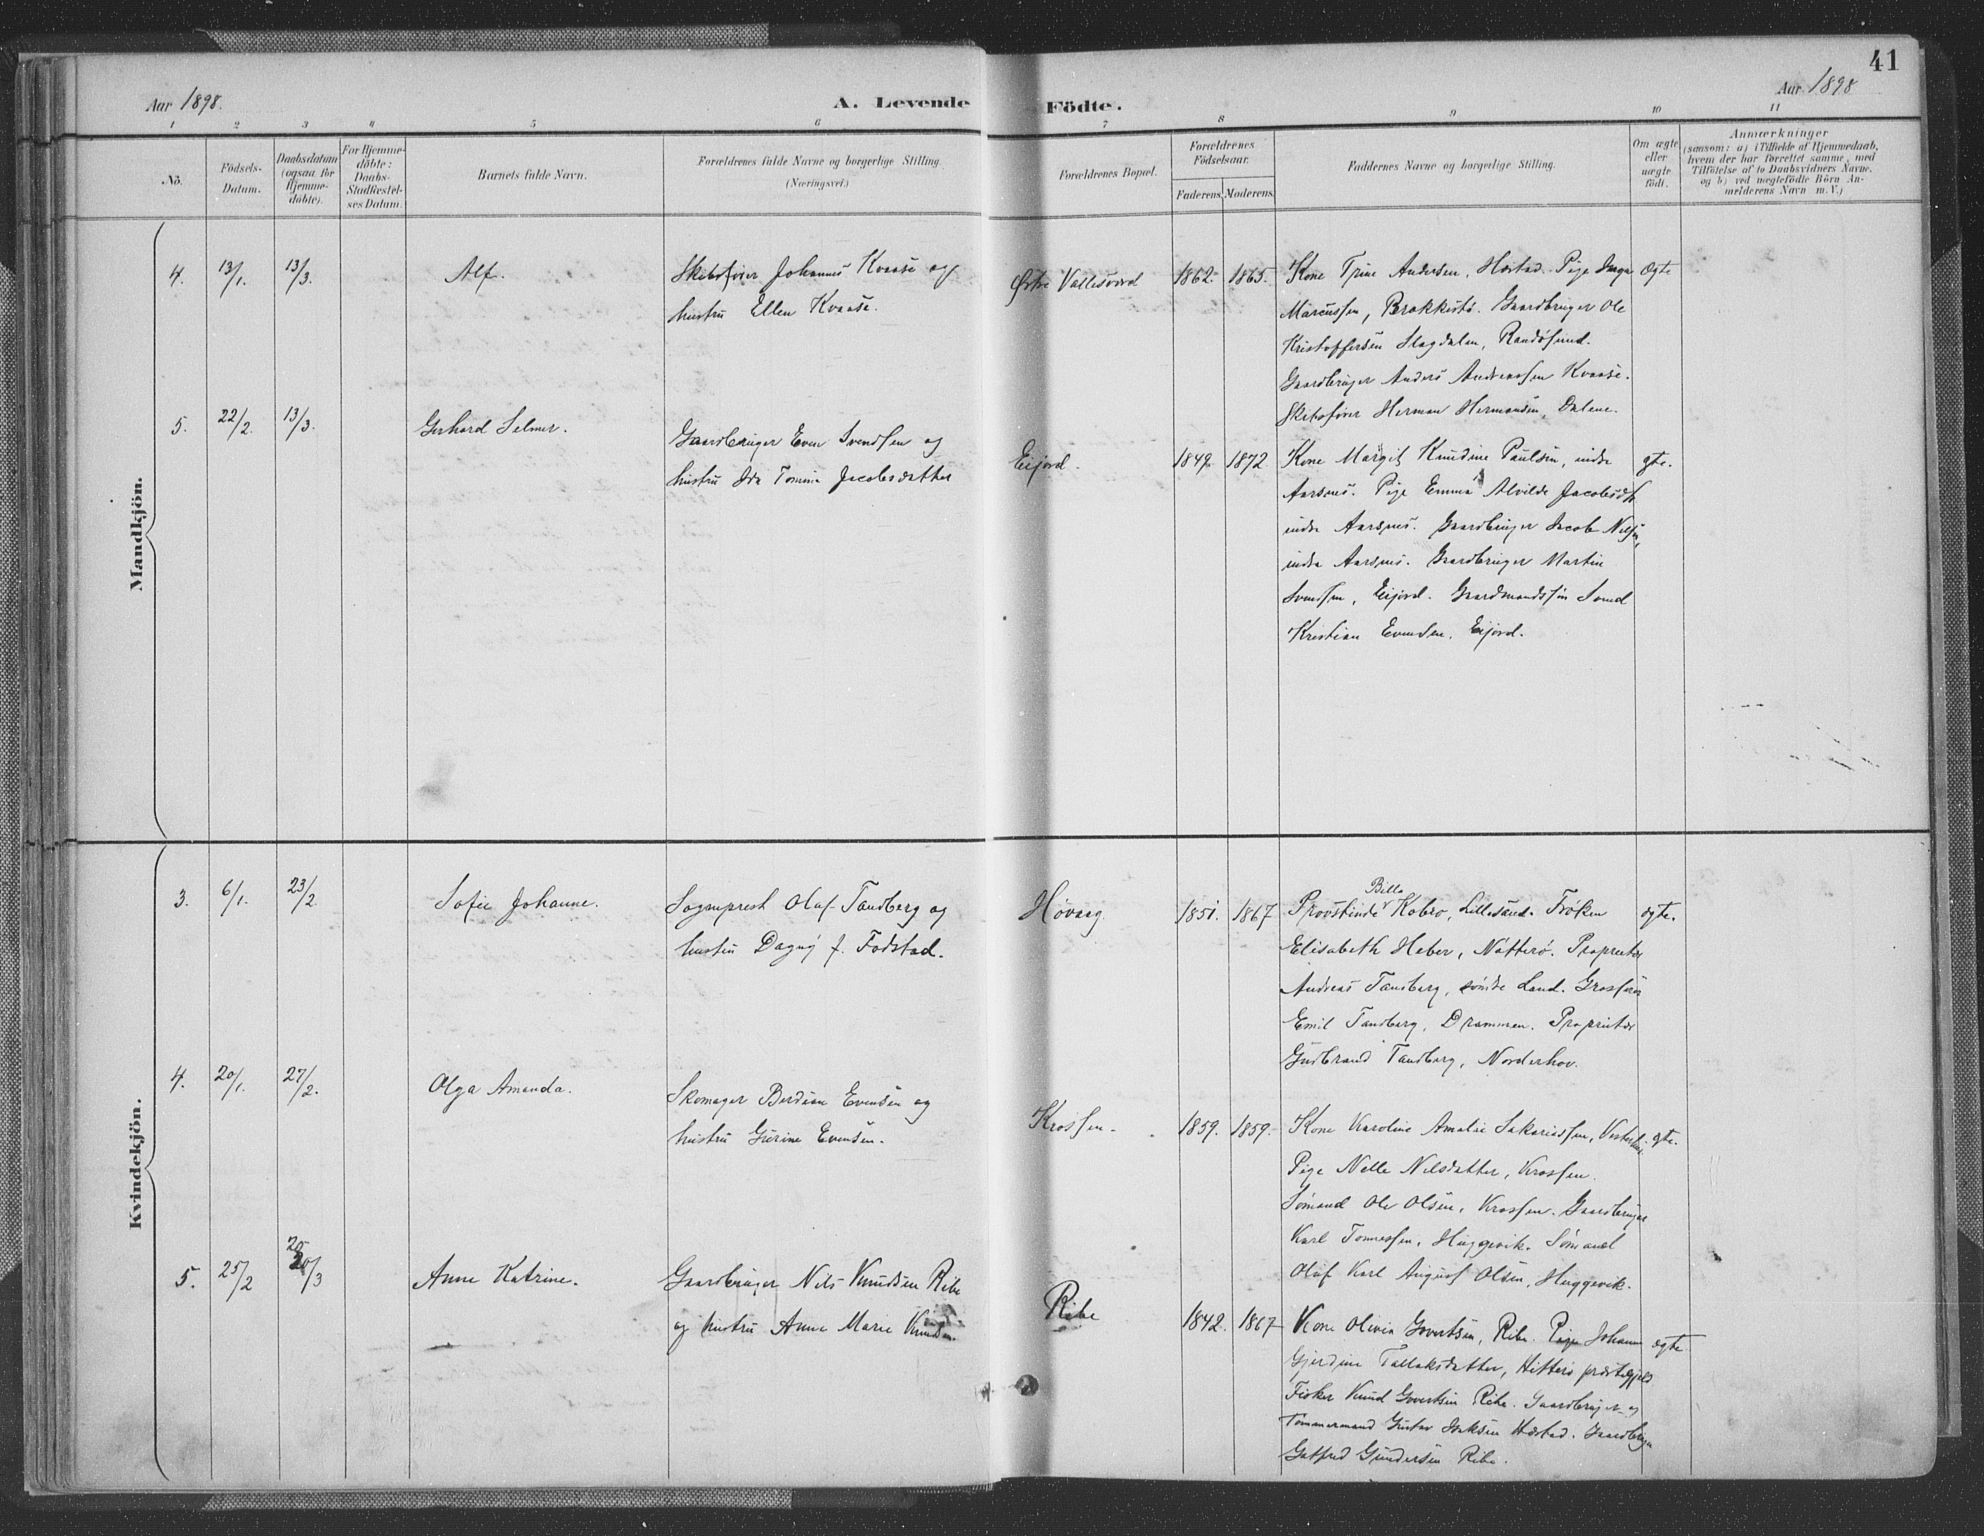 41
Aar 1898.
A. Levende Födte.
Aar 1898
1 2 3 4 5 6 7 8 9 10 11
No.
Födsels-Datum.
Daabsdatum (ogsaa for Hjemme-döbte).
For Hjemme-döbte: Daabs-Stadfæstel-ses Datum.
Barnets fulde Navn.
Forældrenes fulde Navne og borgerlige Stilling.
(Næringsvei.)
Forældrenes Bopæl.
Forældrenes Födselsaar.
Faderens. Moderens.
Faddernes Navne og borgerlige Stilling.
Om ægte eller uægte födt.
Anmærkninger
(saasom: a) i Tilfælde af Hjemmedaab,
hvem der har forrettet samme, med
Tilföielse af to Daabsvidners Navne,
og b) ved uægtefödte Börn An-
melderens Navn m. V.)
Mandkjön.
4. 13/1. 13/3. Alf.
Skibsfører Johannes Kvaase og
hustru Ellen Kvaase.
Østre Vallesværd 1862. 1865.
Kone Trine Andersen, Hæstad. Pige Inga
Marcussen, Brækkestø. Gaardbruger Ole
Kristoffersen Slagdalen, Randøsund.
Gaardbruger Anders Andreassen Kvaase.
Skibsfører Herman Hermansen, Dalene.
Ægte
5. 22/2. 13/3. Gerhard Selmer.
Gaardbruger Even Svendsen og
hustru Ida Tomine Jacobsdatter
Eijord. 1849. 1872
Kone Margit Knudine Paulsen, indre
Aarsnes. Pige Emma Alvilde Jacobsdtr
indre Aarsnes. Gaardbruger Jacob Nilsen,
indre Aarsnes. Gaardbruger Martin
Svendsen, Eijord. Gaardmandssøn Svend
Kristian Evensen, Eijord.
ægte.
Kvindekjön.
3. 6/1. 23/2. Sofie Johanne.
Sogneprest Oluf Tandberg og
hustru Dagny f. Fodstad.
Høvaag 1851. 1867
Billa
Provstinde Kobro, Lillesand. Frøken
Elisabeth Heber, Nøtterø. Proprietær
Andreas Tandberg, søndre Land. Grosserer
Emil Tandberg, Drammen. Proprietær
Gudbrand Tandberg, Norderhov.
ægte.
4. 20/1. 27/2. Olga Amanda.
Skomager Berduan Evensen og
hustru Gurine Evensen.
Krossen. 1859. 1859.
Kone Karoline Amalie Sakariassen, ægte.
Pige Nelle Nilsdatter, Krossen.
Sømand Ole Olsen, Krossen. Gaardbruger
Karl Tønnessen, Huggevik. Sømand
Oluf Karl August Olsen, Huggevik.
5. 25/2 20/3 20 Anne Katrine.
Gaardbruger Nils Knudsen Ribe
og hustru Anne Marie Knudsen.
Ribe 1842. 1867
Kone Olivia Govertsen, Ribe. Pige Johanne
Gjerdine Tallaksdatter, Hitterø præstegjeld
Fisker Knud Govertsen Ribe. Gaardbruger og
Tømmermand Gustav Isaksen Hæstad. Gaardbruger
Gotfred Gundersen Ribe.
ægte